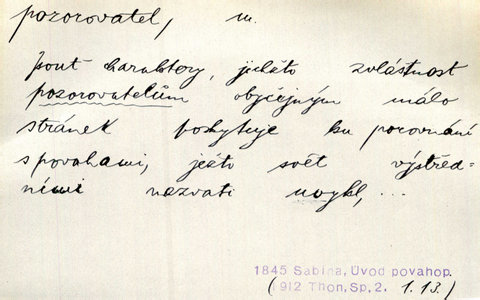 pozorovatel, m.
Jsout charaktery, jichžto zvláštnost
pozorovatelům obyčejným málo
stránek poskytuje ku porovnání
s povahami, ježto svět výstřed=
ními nazvati uvykl, ...
1845 Sabina, Úvod povahop.
(1912 Thon, Sp, 2. 1.13.)